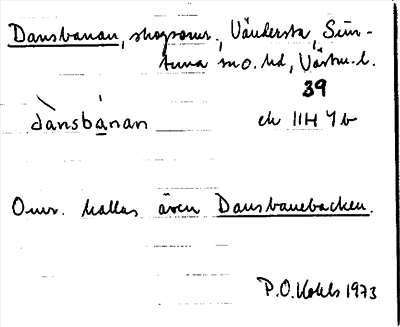 Dansbanan, skogsomr., Vändersta, Sim-
tuna sn o. hd, Västm. l.
39
dànsbánan ek 11H 4b
Omr. kallas även Dansbanebacken.
P.O. Kohls 1973